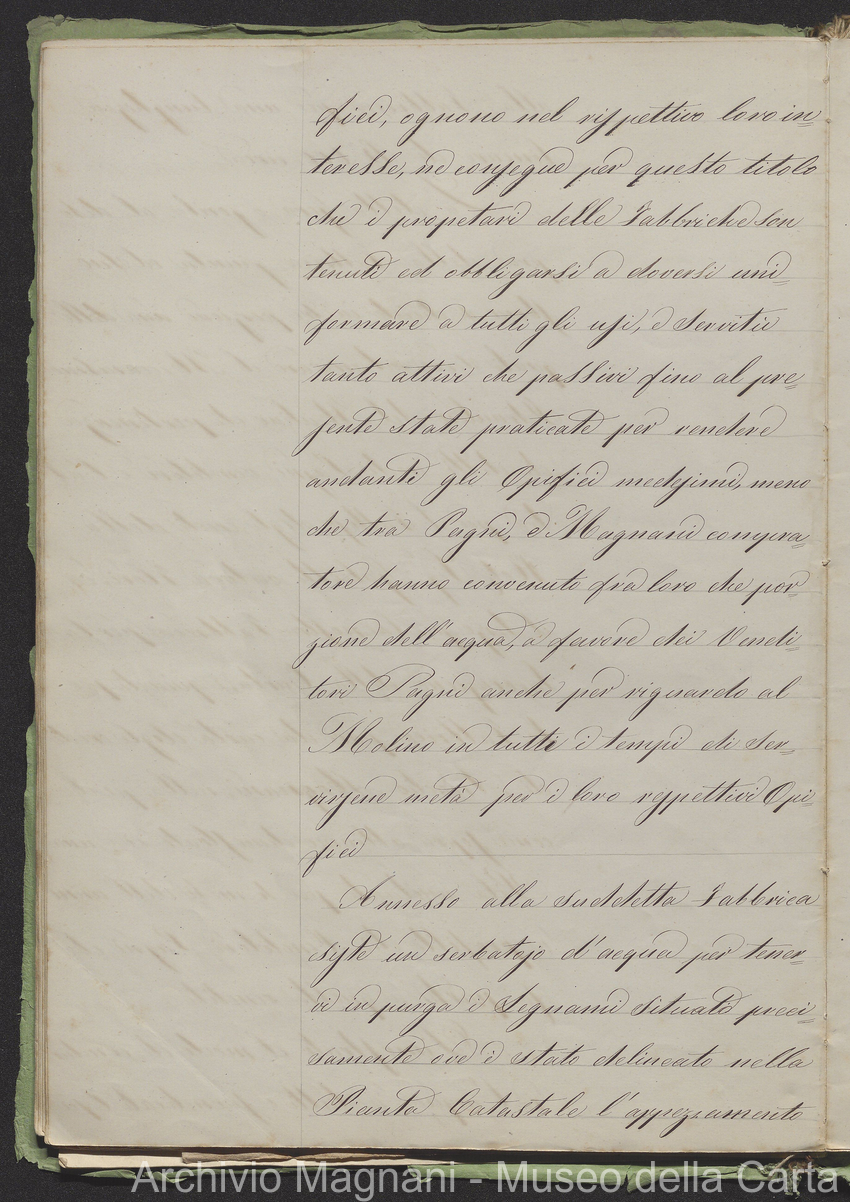 fici, ognono nel rispettivo loro in=
teresse, ne consegue per questo titolo
che i propetari delle Fabbriche son
tenuti ed obbligarsi a doversi uni=
formare a tutti gli usi, e servitù
tanto attivi che passivi fino al pre=
sente state praticate per rendere
andanti gli Opifici medesimi, meno
che tra Pagni, e Magnani compra=
tore hanno convenuto fra loro che por=
zione dell'acqua, a favore dei Vendi=
tori Pagni anche per riguardo al
Molino in tutti i tempi di ser=
virsene metà per i loro respettivi Opi=
fici
Annesso alla suddetta Fabbrica
siste un serbatojo d'acqua per tener=
vi in purga i Legnami situato preci=
samente ove è stato delineato nella
Pianta Catastale l'appezzamento
Archivio Magnani - Museo della Carta